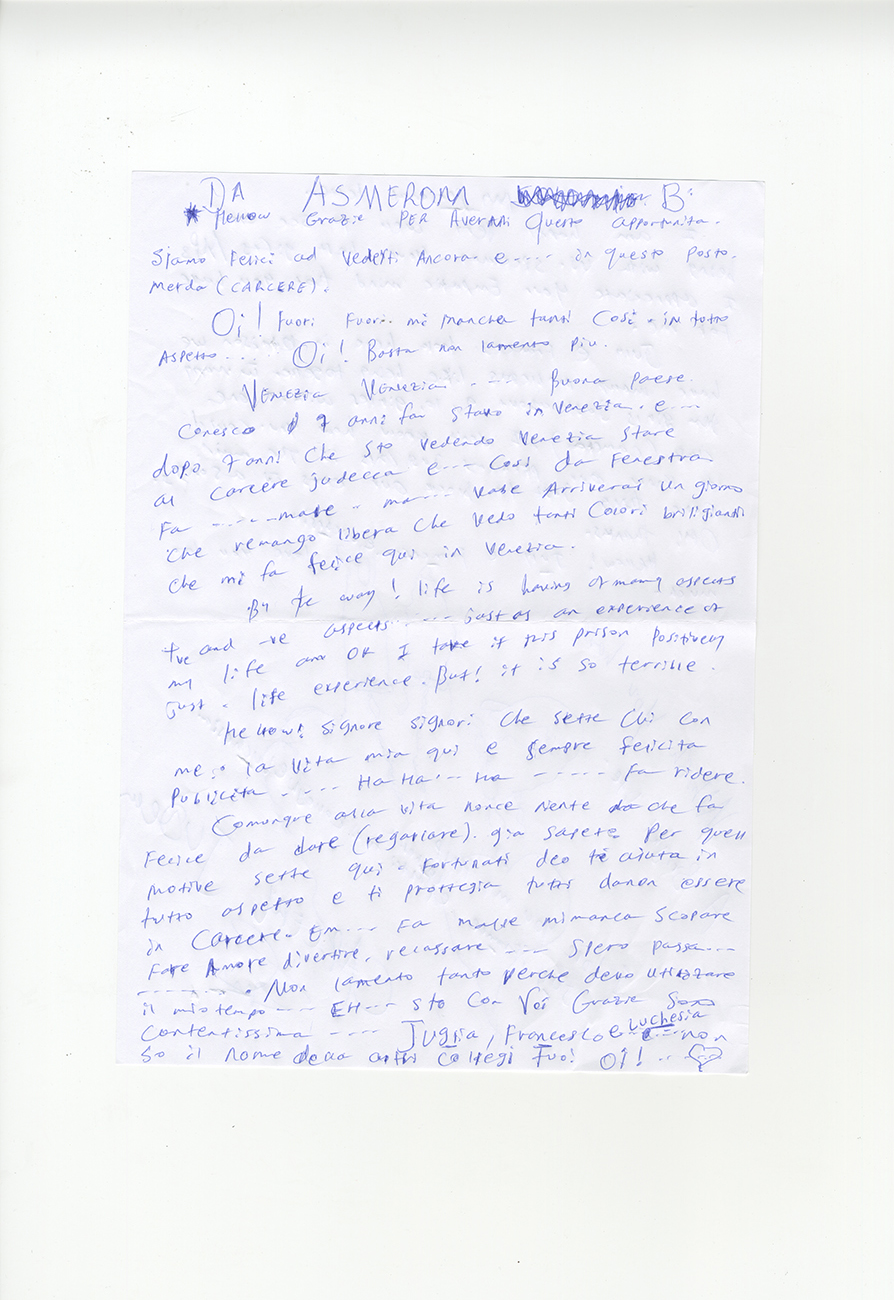 DA ASMEROM B:
Hellow Grazie PER Avermi Questo opportunita.
Siamo Felici ad Vederti Ancora. e.... in questo posto.
merda (CARCERE).
Oi! fuori Fuori. mi mancha tanti Cosi. in tutto
Aspetto..... Oi! Basta non lamento piu.
VENEZIA VENEZIA. --- Buona paese.
Conesco 7 anni fa stavo in Venezia. e....
dopo 7 anni che sto vedendo Venezia stare
al carcere judecca e--- Cosi da Fenestra
Fa ------male. ma---- vabe Arriverai un giorno
che remango libera che vedo tanti Colori briligianti
che mi fa felice qui in Venezia.
By te way! life is having of many aspects
+ve and -ve aspects...... just as an experience of
my life and OK I take it this prison positively
just. life experience. But! it is so terrible.
Hellow! Signore Signori che sette chi con
me. la vita mia qui e sempre felicita
Publicita ----- Ha Ha -- Ha ----- fa ridere.
Comunque alla vita nonce nente che fa
Felice da dare (regarlare). gia sapete per quell
motive sette qui. Fortunati deo te aiuta in
tutto aspetto e ti protegia tutti danon essere
in Carcere. Em.... Fa malle mimanca scopare
Fare Amore divertire, recassare ---- Spero passa---
-------. Non lamento tanto perche devo utilizzare
il mio tempo --- EH--- sto con Voi Grazie Sono
Contentissima ---- Juglia, Francesco e Luchesia non
So il nome della altri Collegi Tuo! Oi! ..